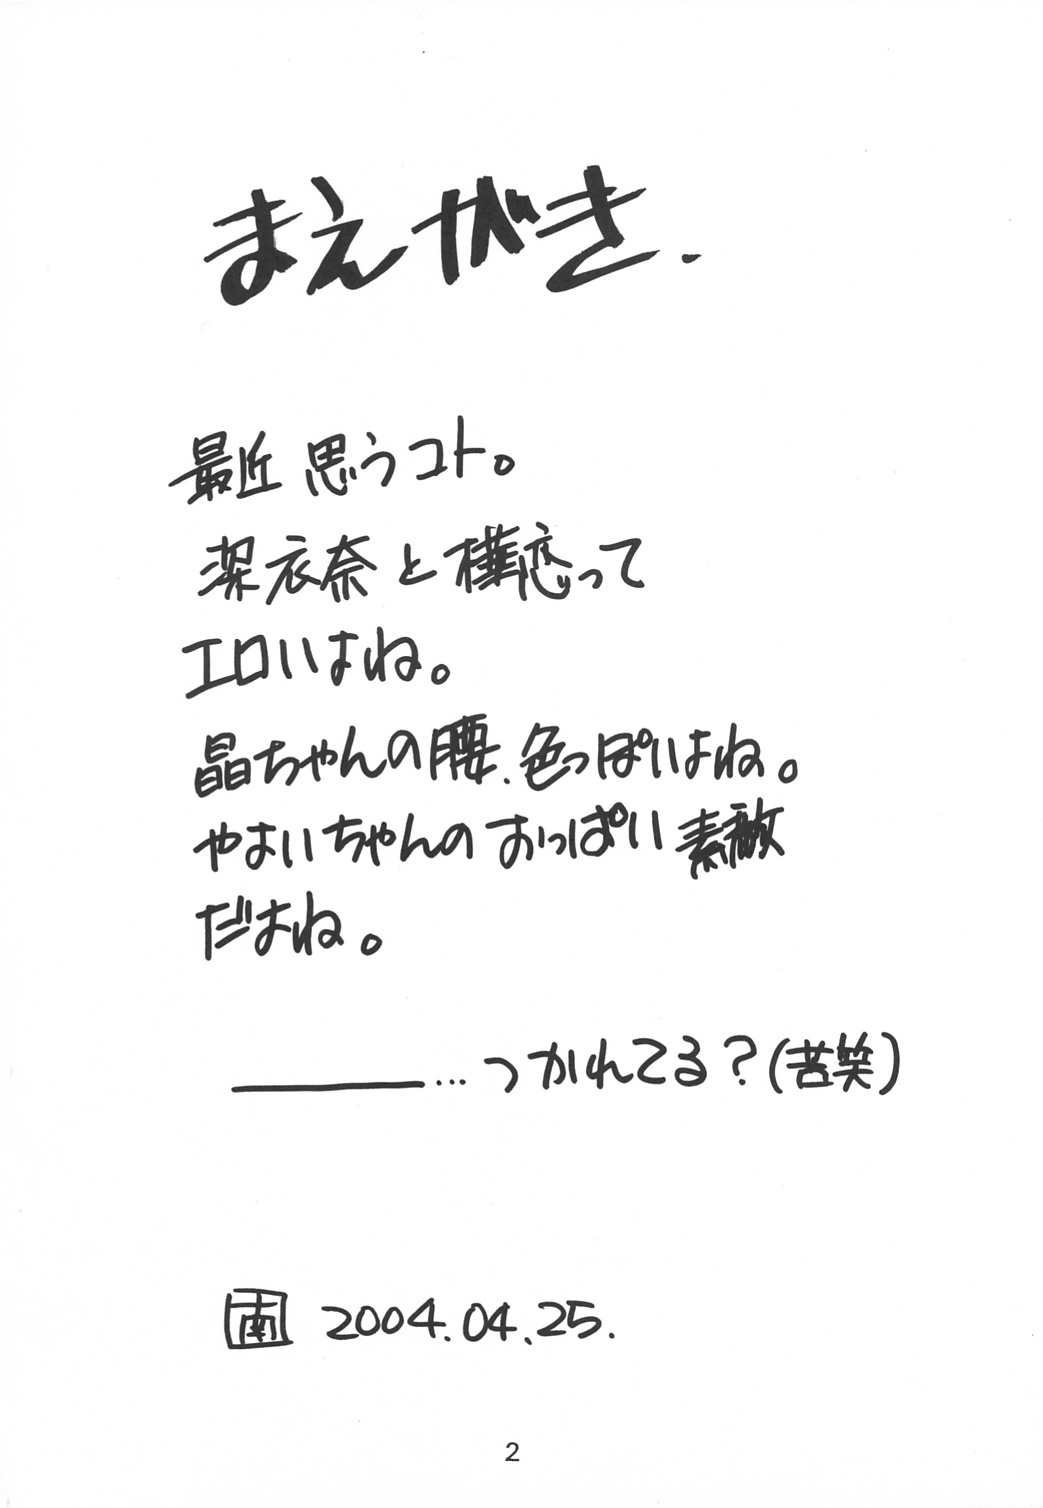 まえがき.
最近 思うコト。
潔衣奈と樺恋って
エロいよね。
晶ちゃんの腰、色っぽいよね。
やよいちゃんのおっぱい素敵
だよね。
————…つかれてる?(苦笑)
南 2004.04.25.
2